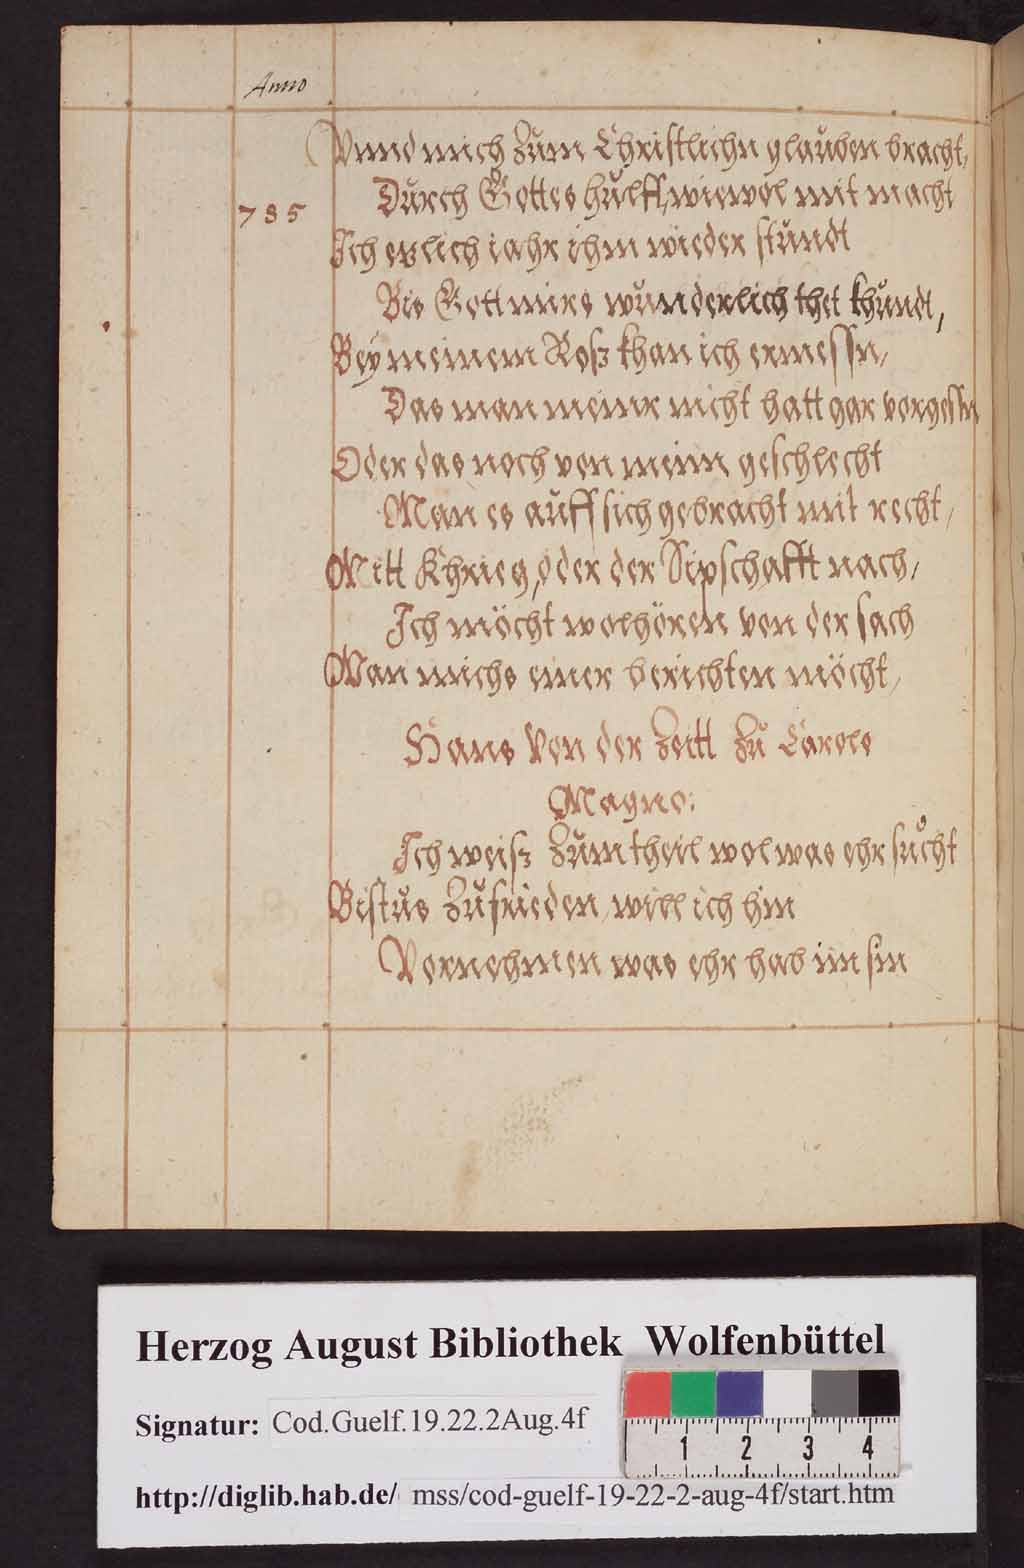 Anno
Vnnd mich zum Christlichn glauben bracht,
785
Durch Gottes hülff, wiewol mit macht
Ich etzlich iahr ihm wieder stundt
Bis Gott mirs wunderlich thet khundt,
Bey meinem Roß khan ich ermessn,
Das man meinr nicht hatt gar vorgessn
Oder das noch von meim geschlecht
Man es auff sich gebracht mit recht,
Mitt Khrieg, oder der Sipschafft nach,
Ich möcht wol hören von der sach
Wan michs einer berichten möcht,
Hans Von der Zeitt Zu Carolo
Magno:
Ich weiß Zum theil wol was ehr sücht
Bistus Zufrieden, will ich hin
Vornehmen was ehr hab im sin
Herzog August Bibliothek Wolfenbüttel
Signatur: Cod.Guelf.19.22.2Aug.4f
1 2 3 4
http://diglib.hab.de/ mss/cod-guelf-19-22-2-aug-4f/start.htm